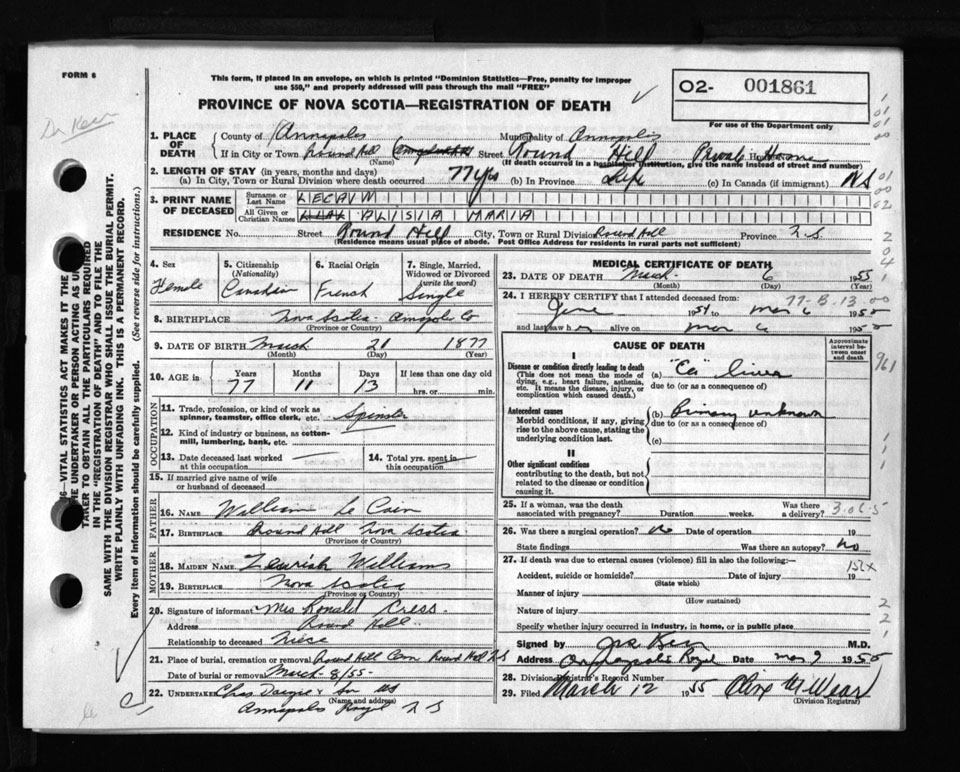 FORM 6
This form, if placed in an envelope, on which is printed "Dominion Statistics—Free, penalty for improper
use $50," and properly addressed will pass through the mail "FREE"
PROVINCE OF NOVA SCOTIA—REGISTRATION OF DEATH
O2- 001861
For use of the Department only
Dr Kerr
1. PLACE OF DEATH County of Annapolis Municipality of Annapolis
If in City or Town Round Hill (Name) Street Round Hill Private Home
(If death occurred in a hospital or institution, give the name instead of street and number)
2. LENGTH OF STAY (in years, months and days)
(a) In City, Town or Rural Division where death occurred 77 yrs (b) In Province Life (c) In Canada (if immigrant) NS
3. PRINT NAME OF DECEASED Surname or Last Name LECAIN
All Given or Christian Names ALISIA MARIA
RESIDENCE No. Street Round Hill City, Town or Rural Division Round Hill Province N.S
(Residence means usual place of abode. Post Office Address for residents in rural parts not sufficient)
4. Sex Female
5. Citizenship (Nationality) Canadian
6. Racial Origin French
7. Single, Married, Widowed or Divorced (write the word) Single
8. BIRTHPLACE Nova Scotia - Annapolis Co
(Province or Country)
9. DATE OF BIRTH March 21 1877
(Month) (Day) (Year)
10. AGE in Years 77 Months 11 Days 13 If less than one day old
hrs. or min.
OCCUPATION
11. Trade, profession, or kind of work as spinner, teamster, office clerk, etc. Spinster
12. Kind of industry or business, as cotton-mill, lumbering, bank, etc.
13. Date deceased last worked at this occupation —
14. Total yrs. spent in this occupation —
15. If married give name of wife or husband of deceased
FATHER
16. NAME William Le Cain
17. BIRTHPLACE Round Hill Nova Scotia
(Province or Country)
MOTHER
18. MAIDEN NAME Williams
19. BIRTHPLACE Nova Scotia
(Province or Country)
20. Signature of informant Mrs Ronald Cress.
Address Round Hill
Relationship to deceased Niece
21. Place of burial, cremation or removal Round Hill Cem Round Hill N.S
Date of burial or removal March 8/55
22. UNDERTAKER Chas & Son
(Name and address)
Annapolis Royal N S
MEDICAL CERTIFICATE OF DEATH
23. DATE OF DEATH March 6 1955
(Month) (Day)
24. I HEREBY CERTIFY that I attended deceased from: 77-B-13.00
1954 to Mar 6 1955
and last saw her alive on Mar 6 1955
CAUSE OF DEATH
Approximate interval between onset and death
I
Disease or condition directly leading to death
(This does not mean the mode of dying, e.g., heart failure, asthenia, etc. It means the disease, injury, or complication which caused death.)
(a) "Ca" liver
due to (or as a consequence of)
Antecedent causes
Morbid conditions, if any, giving rise to the above cause, stating the underlying condition last.
(b) Primary unknown
due to (or as a consequence of)
(c)
II
Other significant conditions
contributing to the death, but not related to the disease or condition causing it.
25. If a woman, was the death associated with pregnancy? Duration weeks. Was there a delivery?
26. Was there a surgical operation? No Date of operation 19
State findings Was there an autopsy? No
27. If death was due to external causes (violence) fill in also the following:
Accident, suicide or homicide? Date of injury 19
(State which)
Manner of injury
(How sustained)
Nature of injury
Specify whether injury occurred in industry, in home, or in public place
Signed by Kerr M.D.
Address Annapolis Royal Date Mar 9 1955
28. Division Registrar's Record Number
29. Filed March 12 1955
(Division Registrar)
VITAL STATISTICS ACT MAKES IT THE
UNDERTAKER OR PERSON ACTING AS
TAKER TO OBTAIN ALL THE PARTICULARS REQUIRED
IN THE "REGISTRATION OF DEATH" AND TO FILE THE
SAME WITH THE DIVISION REGISTRAR WHO SHALL ISSUE THE BURIAL PERMIT.
WRITE PLAINLY WITH UNFADING INK. THIS IS A PERMANENT RECORD.
Every item of information should be carefully supplied. (See reverse side for instructions.)